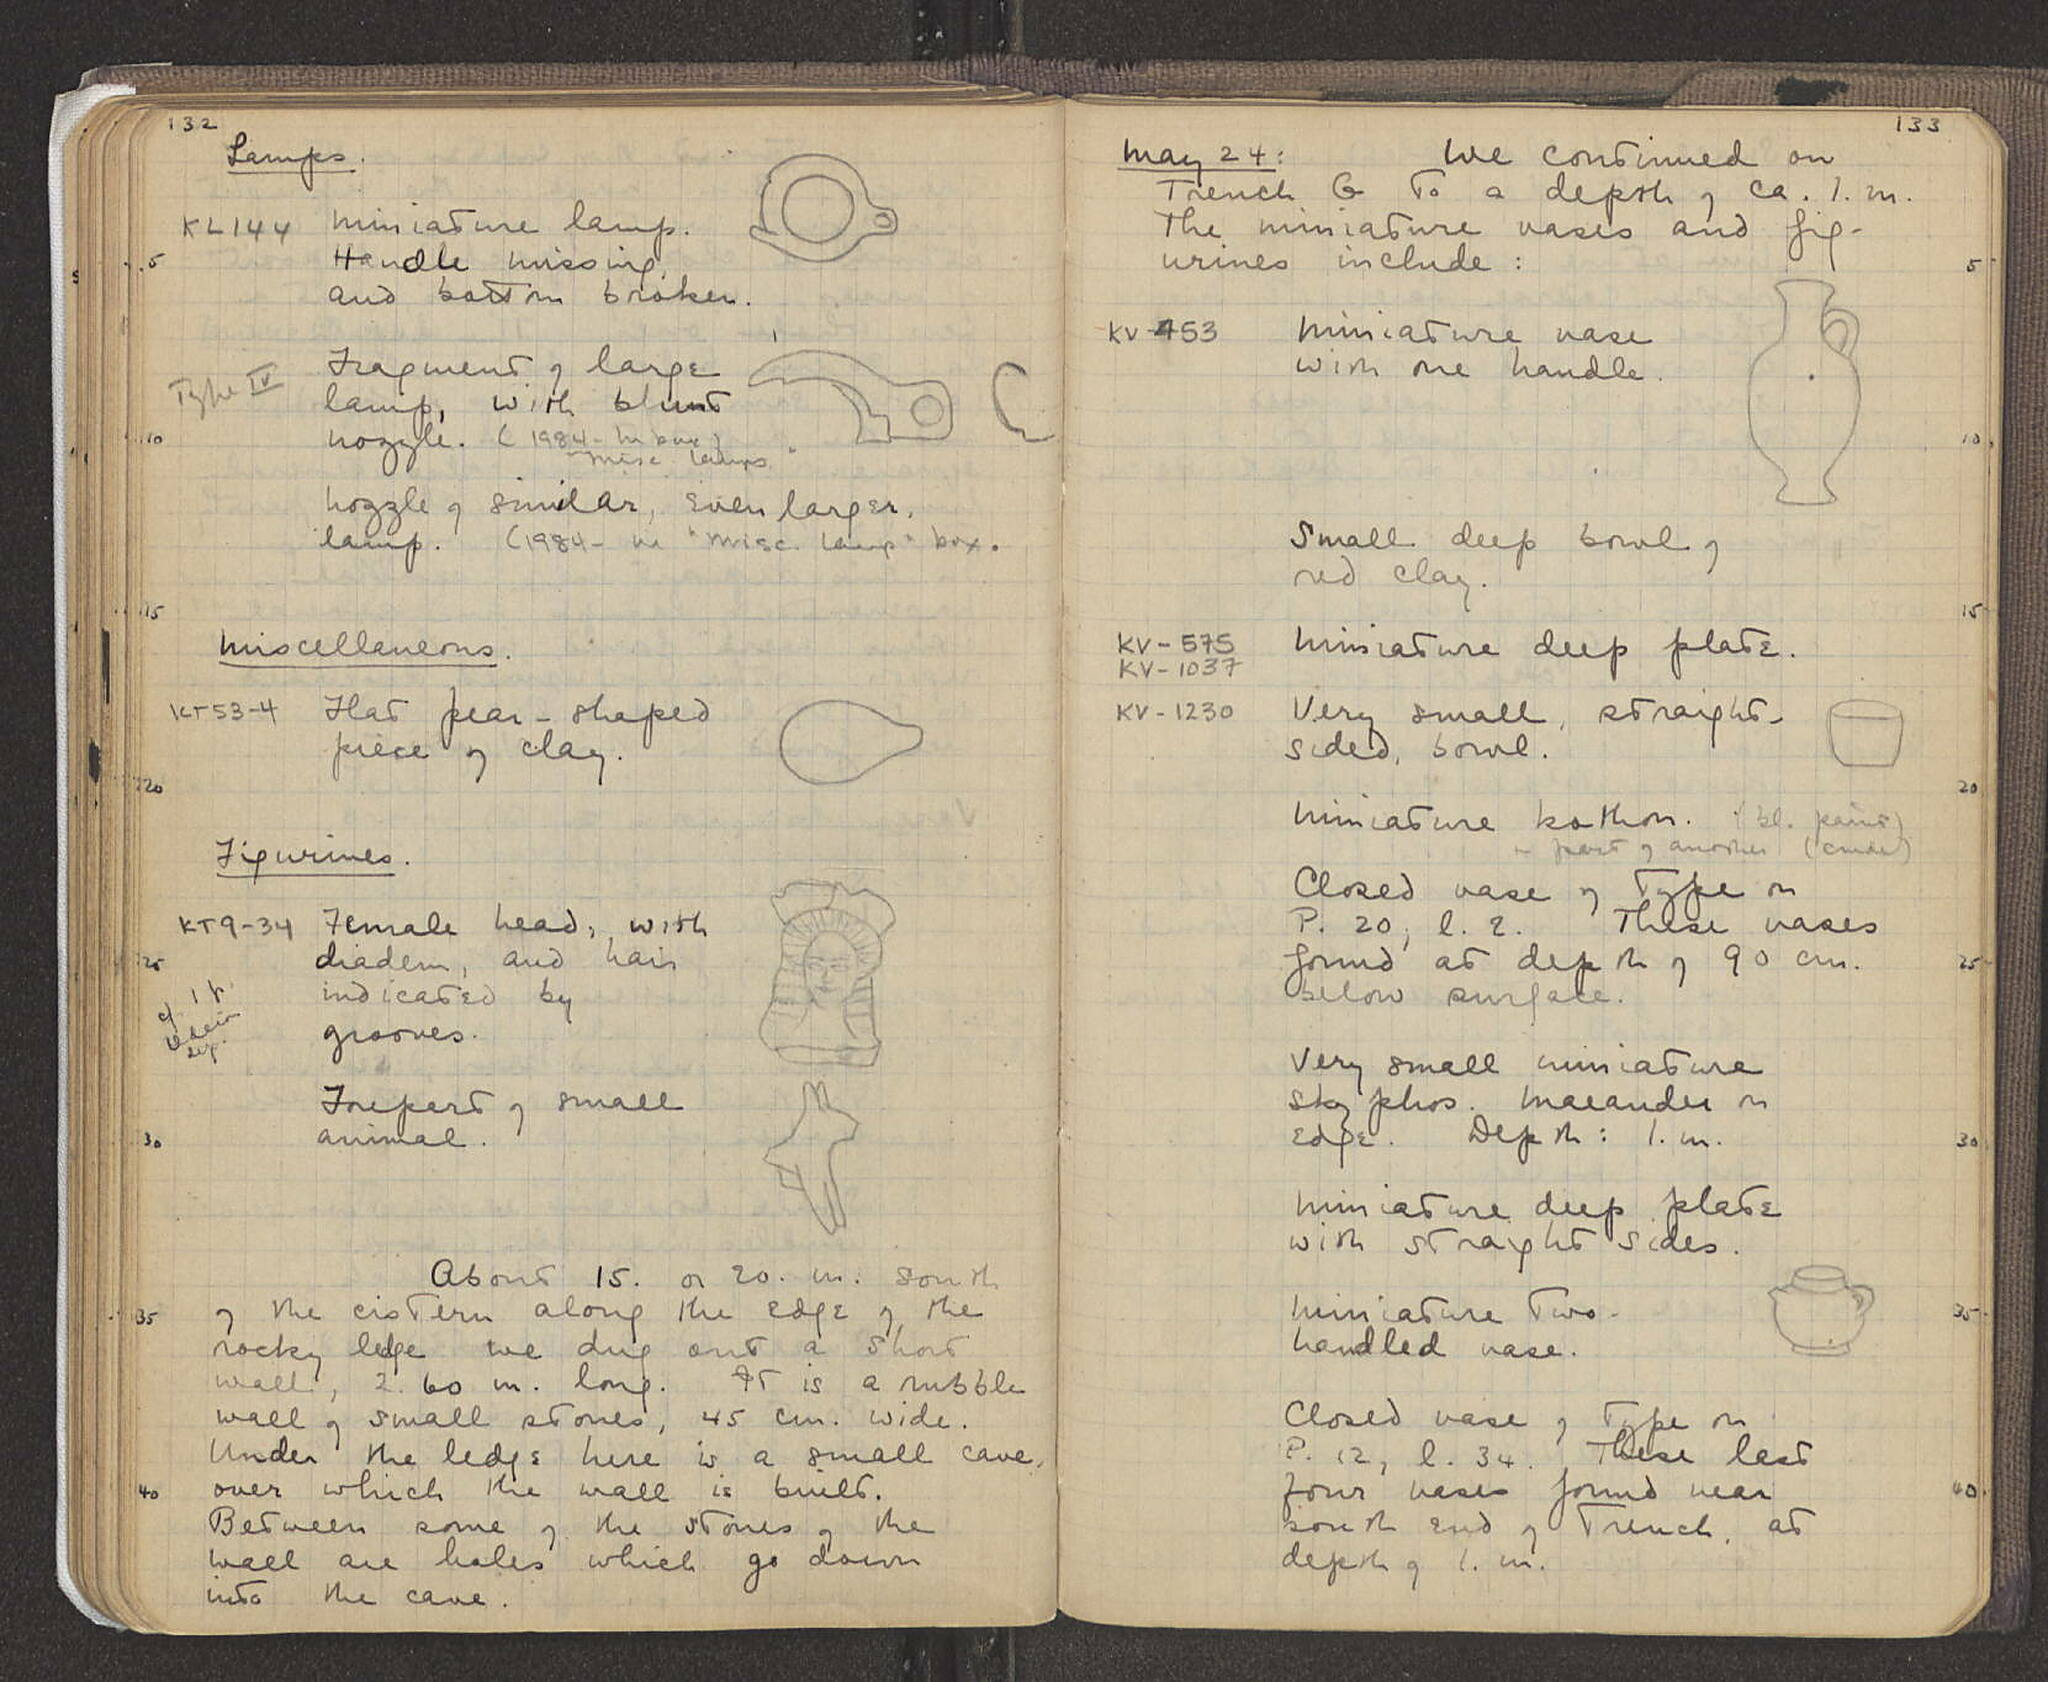 132
Lamps.
KL144 Miniature lamp.
5 Handle missing,
and bottom broken.
Type IV Fragment of large
lamp, with blunt
10 nozzle. (1984 - in box,
"misc. lamps"
Nozzle of similar, even larger,
lamp. (1984 - in "misc. lamp" box.
15
Miscellaneous.
KT53-4 Flat pear-shaped
piece of clay.
20
Figurines.
KT9-34 Female head, with
25 diadem, and hair
indicated by
grooves.
Forepart of small
30 animal.
About 15. or 20. m. south
35 of the cistern along the edge of the
rocky ledge we dug out a short
wall, 2.60 m. long. It is a rubble
wall of small stones, 45 cm. wide.
Under the ledge here is a small cave,
40 over which the wall is built.
Between some of the stones of the
wall are holes which go down
into the cave.
133
May 24: We continued on
Trench G to a depth of ca. 1. m.
The miniature vases and fig-
urines include: 5
KV-453 Miniature vase
with one handle.
10
Small deep bowl of
red clay.
15
KV-575 Miniature deep plate.
KV-1037
KV-1230 Very small, straight-
sided, bowl.
20
Miniature kothon. (bl. paint)
- part of another (crude)
Closed vase of Type on
P. 20, l. 2. These vases
found at depth of 90 cm. 25
below surface.
Very small miniature
skyphos. Maeander on
edge. Depth: 1. m. 30
Miniature deep plate
with straight sides.
Miniature Two- 35
handled vase.
Closed vase of Type on
P. 12, l. 34. These last
four vases found near 40
south end of Trench, at
depth of 1. m.